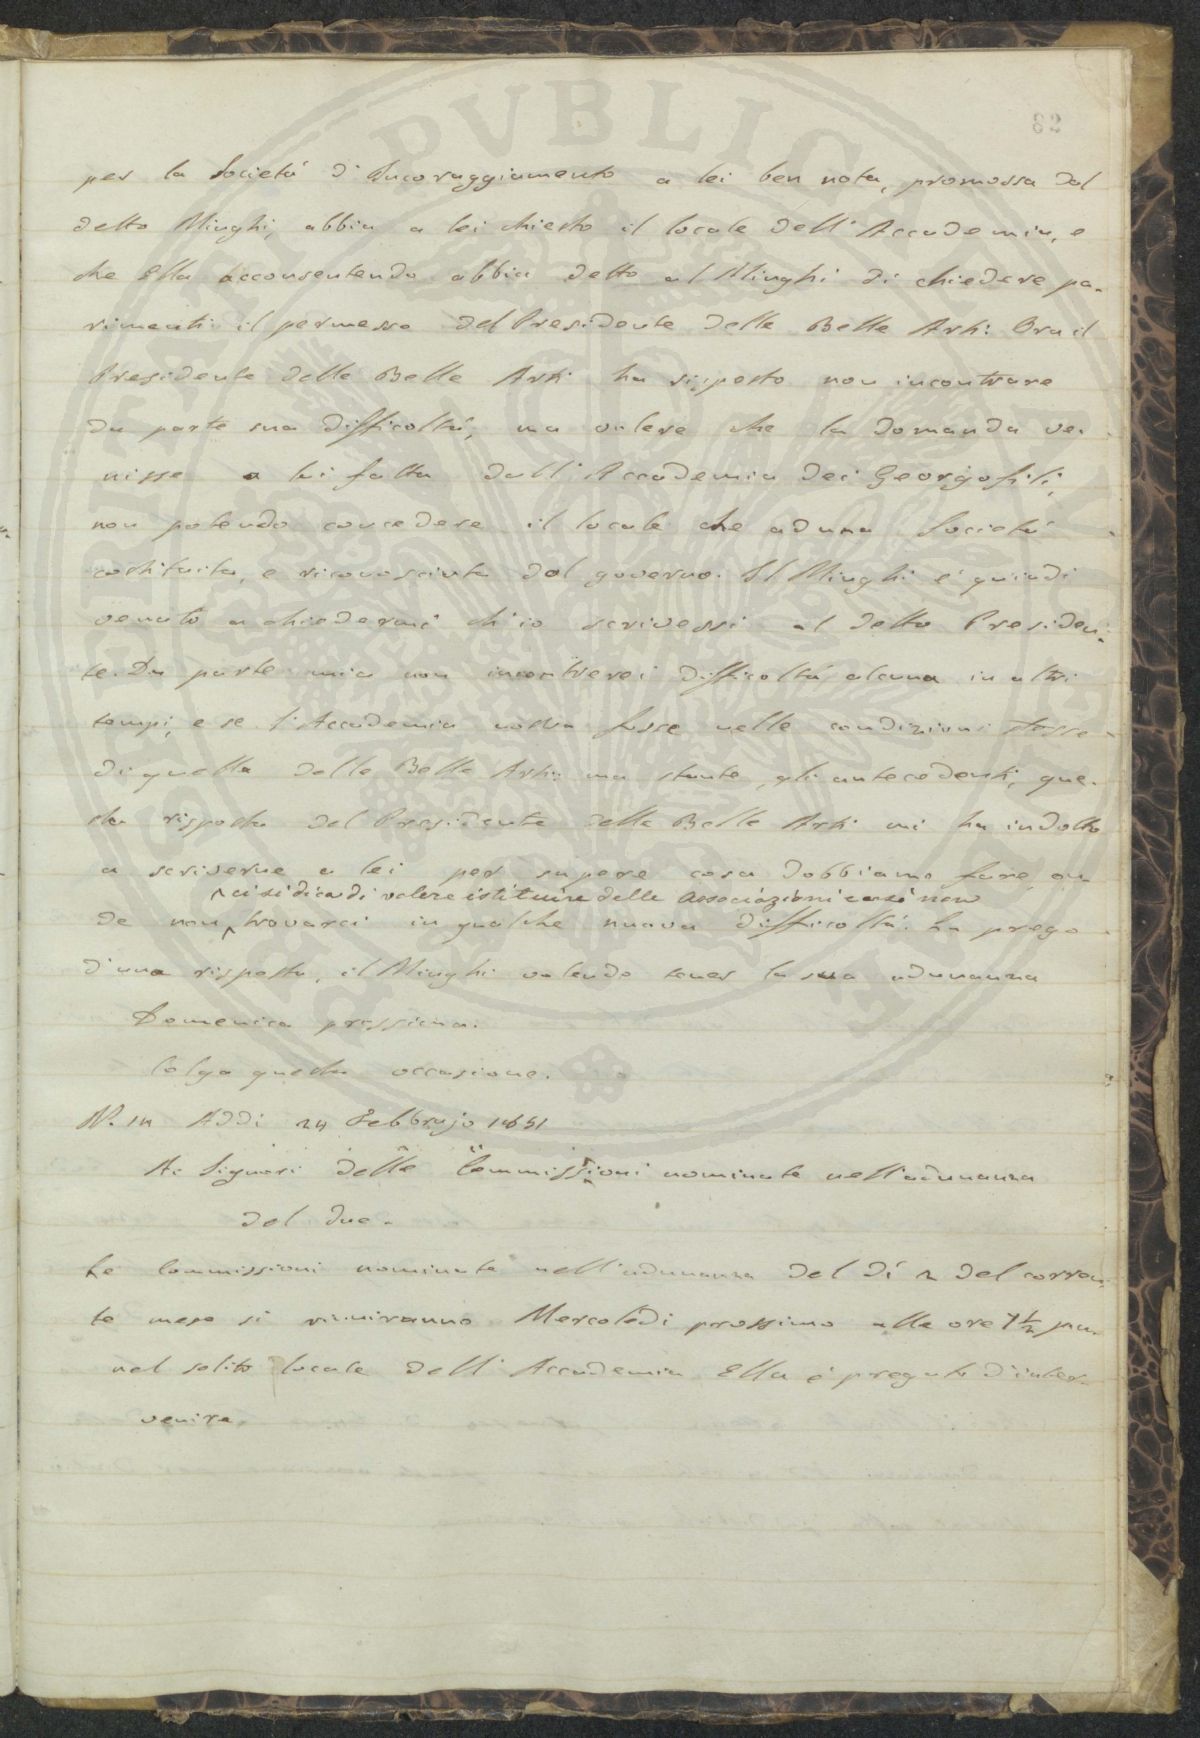 82
per la Società d'Incoraggiamento a lei ben nota, promossa dal
detto Minghi, abbia a lei chiesto il locale dell'Accademia, e
che Ella acconsentendo abbia detto al Minghi di chiedere pa-
rimenti il permesso del Presidente delle Belle Arti. Ora il
Presidente delle Belle Arti ha risposto non incontrare
da parte sua difficoltà, ma volere che la domanda ve-
nisse a lui fatta dall'Accademia dei Georgofili,
non potendo concedere il locale che ad una Società
costituita, e riconosciuta dal governo. Il Minghi è quindi
venuto a chiedermi ch'io scrivessi al detto Presiden-
te. Da parte mia non incontrerei difficoltà alcuna in altri
tempi, e se l'Accademia nostra fosse nelle condizioni stesse
di quella delle Belle Arti: ma stante gli antecedenti, que-
sta risposta del Presidente delle Belle Arti mi ha indotto
a scriverne a lei per sapere cosa dobbiamo fare, on
ci si dica di volere istituire delle associazioni e così non
de non trovarci in qualche nuova difficoltà. La prego
d'una risposta, il Minghi volendo tener la sua adunanza
Domenica prossima.
Colgo questa occasione.
N. 14 Addì 24 Febbrajo 1851
Ai Signori delle Commissioni nominate nell'adunanza
del due.
Le Commissioni nominate nell'adunanza del dì 2 del corren-
te mese si riuniranno Mercoledì prossimo alle ore 7 1/2 pm.
nel solito locale dell'Accademia. Ella è pregato d'inter-
venire.